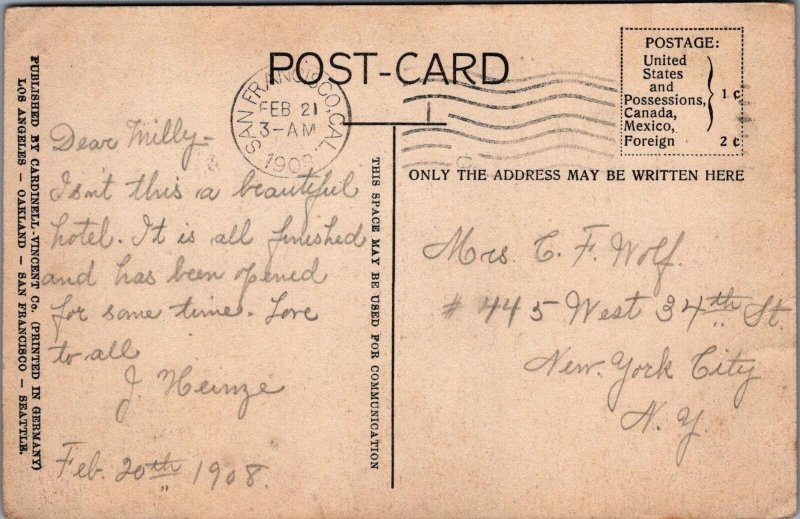 POST-CARD
SAN FRANCISCO, CAL.
FEB 21
3-AM
1908
POSTAGE:
United
States
and
Possessions,
Canada,
Mexico,
1 c
Foreign 2 c
PUBLISHED BY CARDINELL-VINCENT CO. (PRINTED IN GERMANY)
LOS ANGELES – OAKLAND – SAN FRANCISCO – SEATTLE.
Dear Milly–
Isn't this a beautiful
hotel. It is all finished
and has been opened
for some time. Love
to all
J. Heinze
Feb. 20th 1908.
THIS SPACE MAY BE USED FOR COMMUNICATION
ONLY THE ADDRESS MAY BE WRITTEN HERE
Mrs. C. F. Wolf.
# 445 West 34th St.
New York City
N. Y.